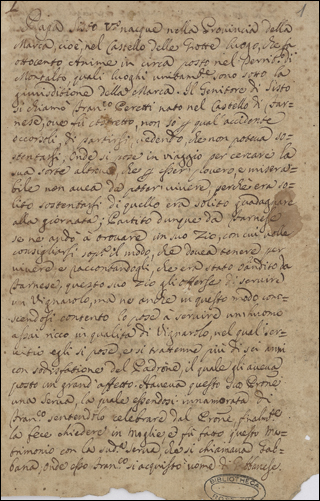 1
Papa Sisto V.º nacque nella Provincia della
Marca, cioè nel Castello delle Grotte luogo, che fa
ottocento Anime in circa posto nel Territ.º di
Montalto quali luoghi ambend.e sono sotto la
giurisditione della Marca. Il Genitore di Sisto
si chiamò Fran.co Peretti nato nel Castello di Far-
nese, ove fù che non sò p qual accidente
occorsoli di partirsi, vedendo, che non poteva so-
stentarsi, onde si pose in viaggio per cercare la
sua sorte altrove, che p esser povero, e misera-
bile non aveva da poter vivere perche era so-
lito sostentarsi di quello era solito guadagnare
alla giornata; Partito dunque da Farnese
se ne andò à trovare un suo Zio, con cui volle
consigliarsi sop.a il modo, che dovea tenere per
vivere e raccontandogli, che era stato bandito da
Farnese, questo suo Zio gli offerse di servire
un Vignarolo, ma ne anche in questo modo con-
tento lo pose à servire un
assai ricco in qualità di Vignarolo, nel quel ser-
vitio egli si pose, e si trattenne più di sei anni
con sodisfattione del Padrone, il quale gli aveva
posto un grand'affetto. Haveva questo suo Prone
una serva, la quale essendosi innamorata di
Fran.co sentendolo celebrare dal Prone
la fece chiedere in moglie, e fù fatto questo Ma-
trimonio con la sud.a serva, che si chiamava
onde esso Fran.co si acquistò nome di
BIBLIOTHECA